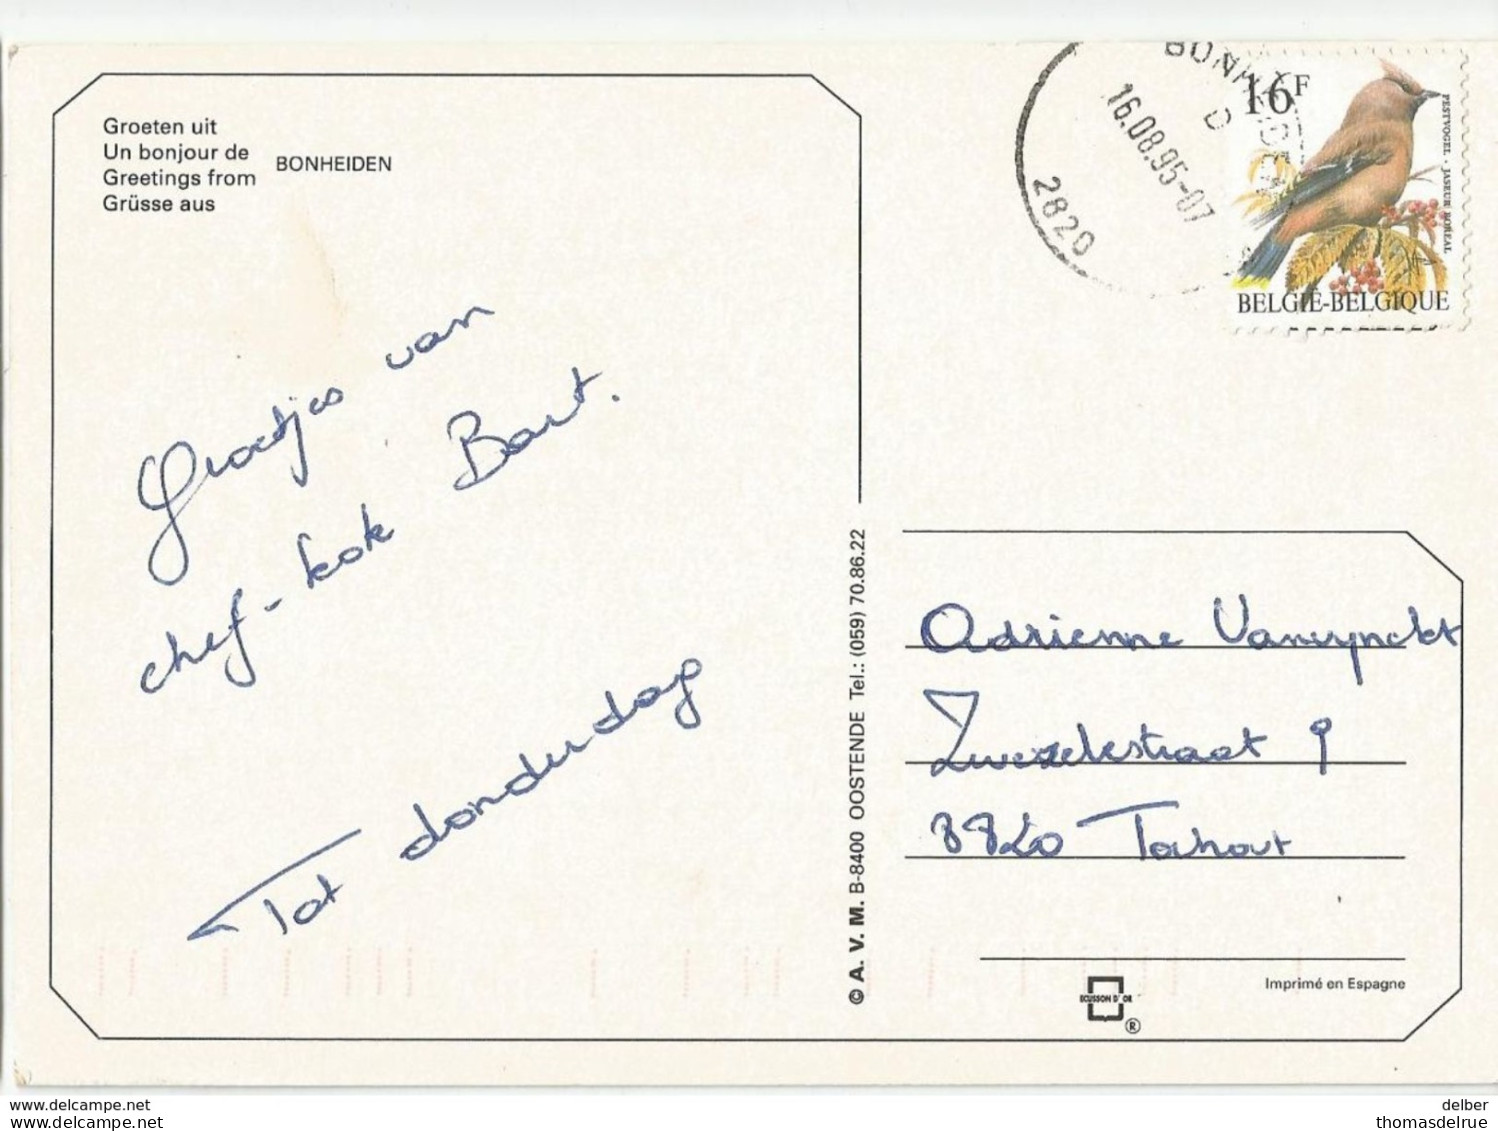 Groeten uit
Un bonjour de
Greetings from
Grüsse aus
BONHEIDEN
Groetjes van
chef-kok Bart.
Tot donderdag
© A. V. M. B-8400 OOSTENDE Tel.: (059) 70.86.22
BONHEIDEN
D
16.08.95-07
2820
16F
PESTVOGEL - JASEUR BOREAL
BELGIË-BELGIQUE
Adrienne Vanrynckt
Zwezelestraat 9
8820 Torhout
ECUSSON D'OR
®
Imprimé en Espagne
www.delcampe.net
www.delcampe.net
delber
thomasdelrue